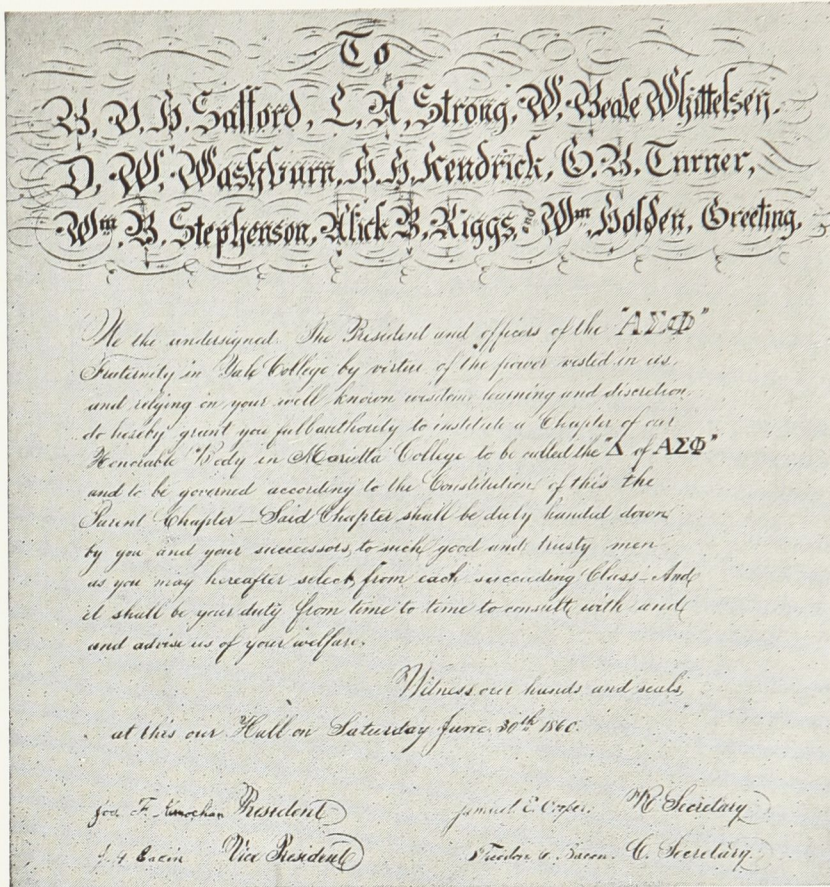 To
B. V. H. Safford, L. A. Strong, W. Beale Whittelsey.
D. W. Washburn, H. H. Kendrick, G. B. Turner,
Wm. B. Stephenson, Alick B. Riggs, and Wm. Holden, Greeting.
We the undersigned. The President and officers of the "ΑΣΦ"
Fraternity in Yale College by virtue of the power vested in us,
and relying on your well known wisdom, learning and discretion,
do hereby grant you full authority to institute a Chapter of our
Honorable Body in Marietta College to be called the "Δ of ΑΣΦ"
and to be governed according to the Constitution of this the
Parent Chapter – Said Chapter shall be duly handed down
by you and your successors, to such good and trusty men
as you may hereafter select, from each succeeding Class – And
it shall be your duty from time to time to consult with and
and advise us of your welfare.
Witness our hands and seals,
at this our Hall on Saturday June 30th 1860.
F. President
Samuel E. Cooper. R Secretary
Vice President
Theodore Bacon. C. Secretary